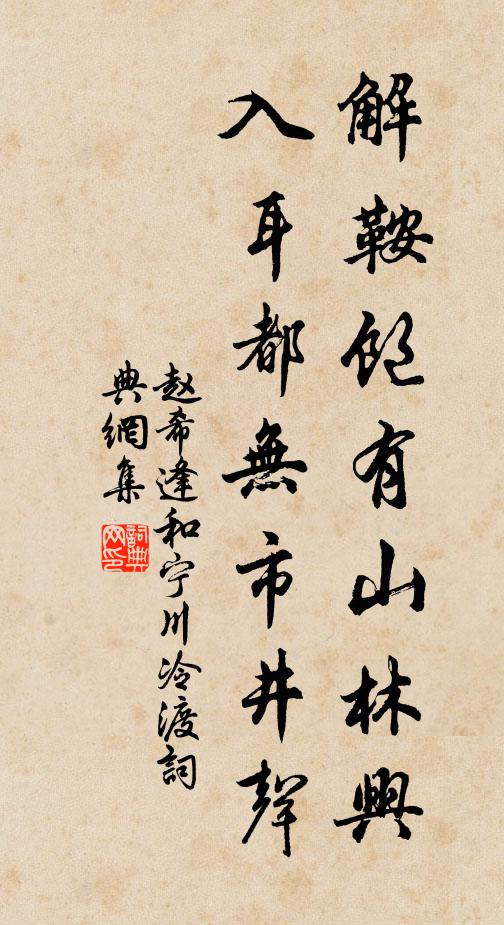 解鞍饱有山林興
入耳都無市井聲
赵希逢和宁川冷渡詞
典網集
詞典
网印